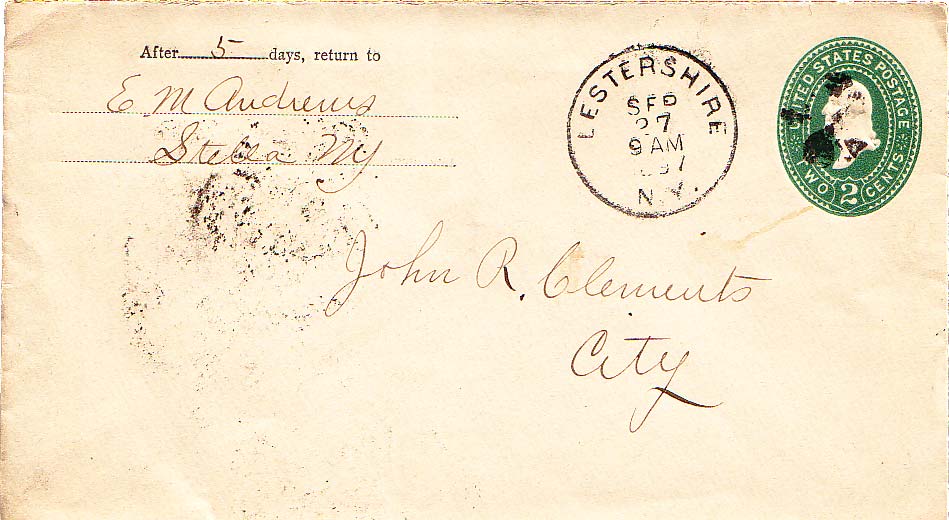 After 5 days, return to
E M Andrews
Stella NY
LESTERSHIRE
SEP
27
9 AM
N.Y.
UNITED STATES POSTAGE
TWO 2 CENTS
John R. Clements
City